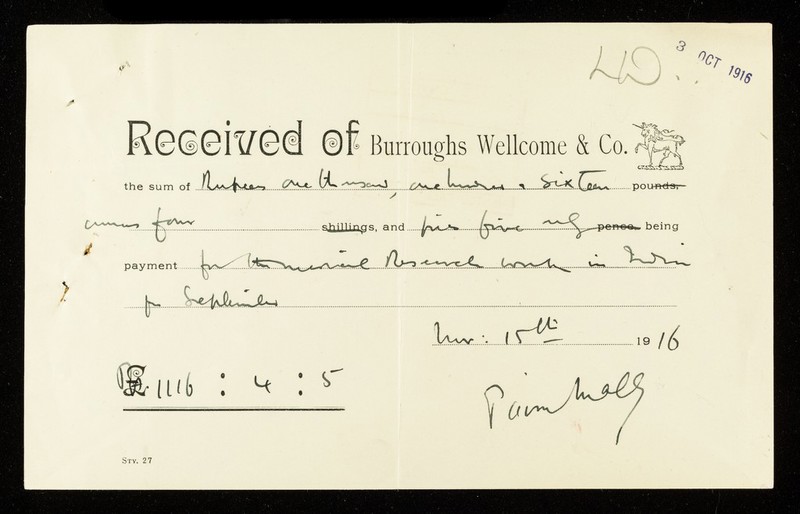 3 OCT 1916
Received of Burroughs Wellcome & Co.
the sum of Rupees one thousand, one hundred & Sixteen pounds,
annas four shillings, and pies five only pence being
payment for Historical Research work in India
for September
Nov: 15th 1916
Rs 1116 : 4 : 5
Paira Mall
Stv. 27